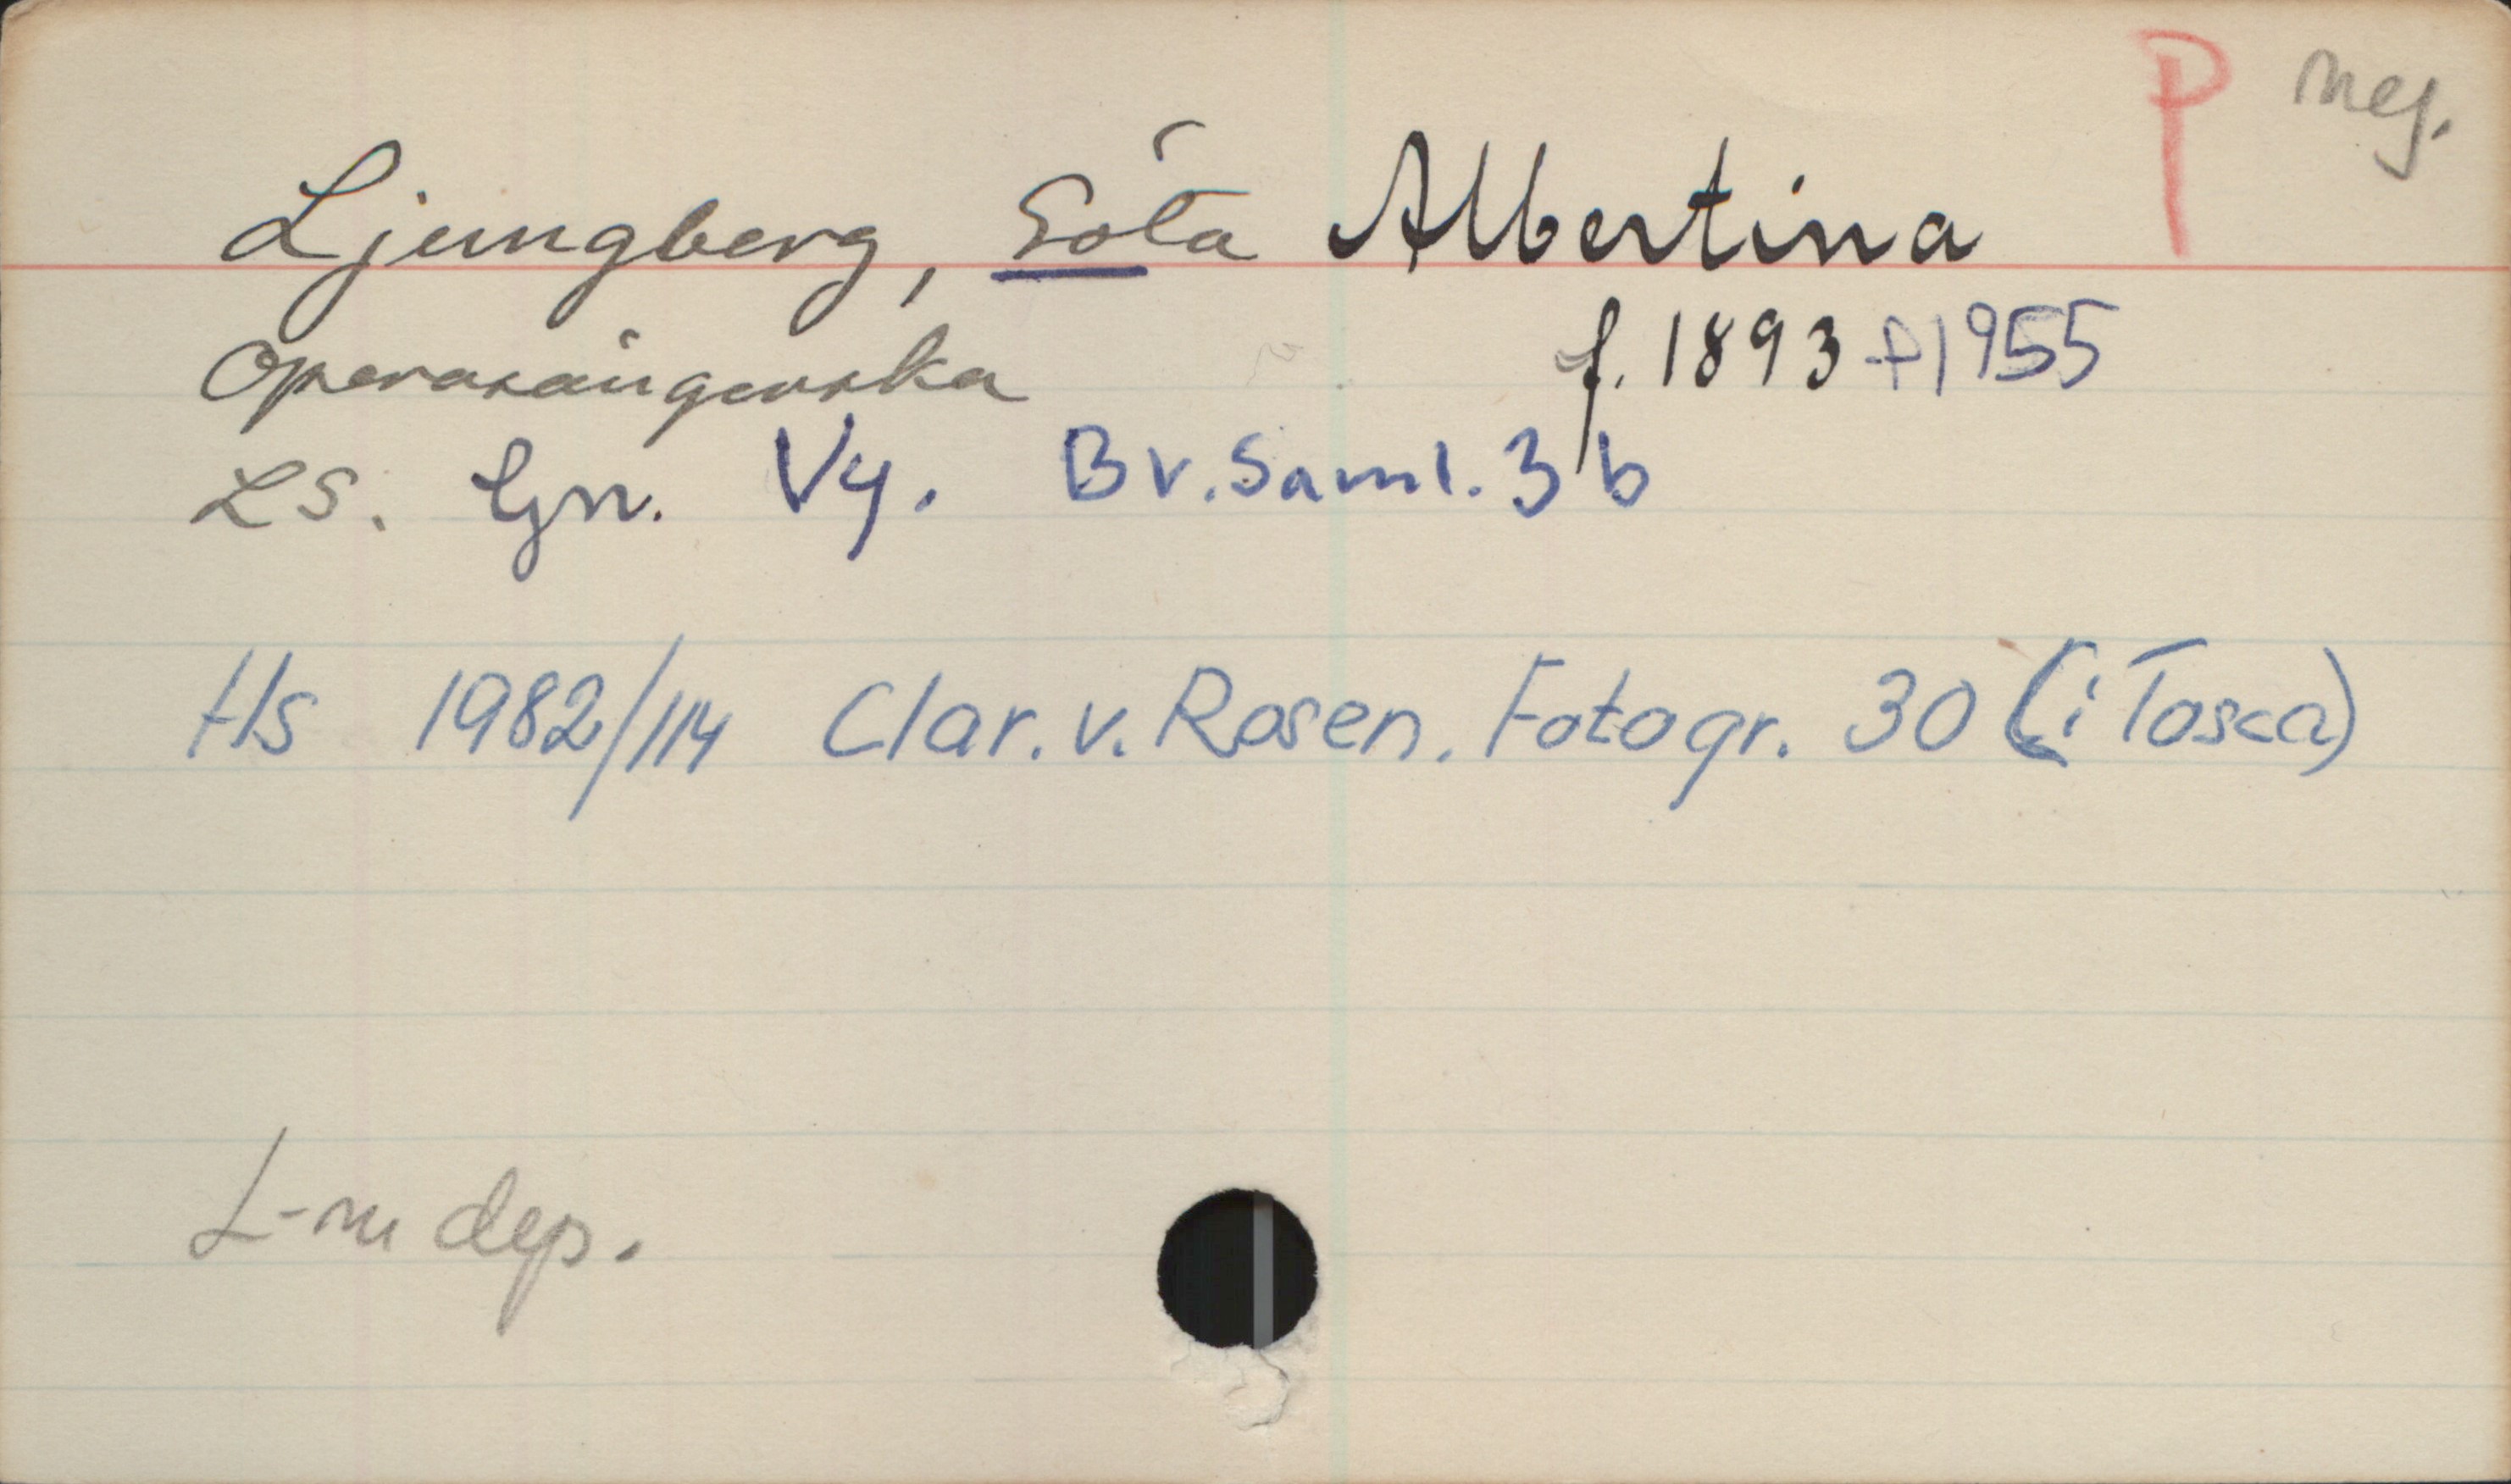 P neg.
Ljungberg, Göta Albertina
Operasångerska f. 1893 +1955
LS. Gn. Vy. Bv. Saml. 3 b
Hs 1982/114 Clar. v. Rosen. Fotogr. 30 (i Tosca)
L-m dep.